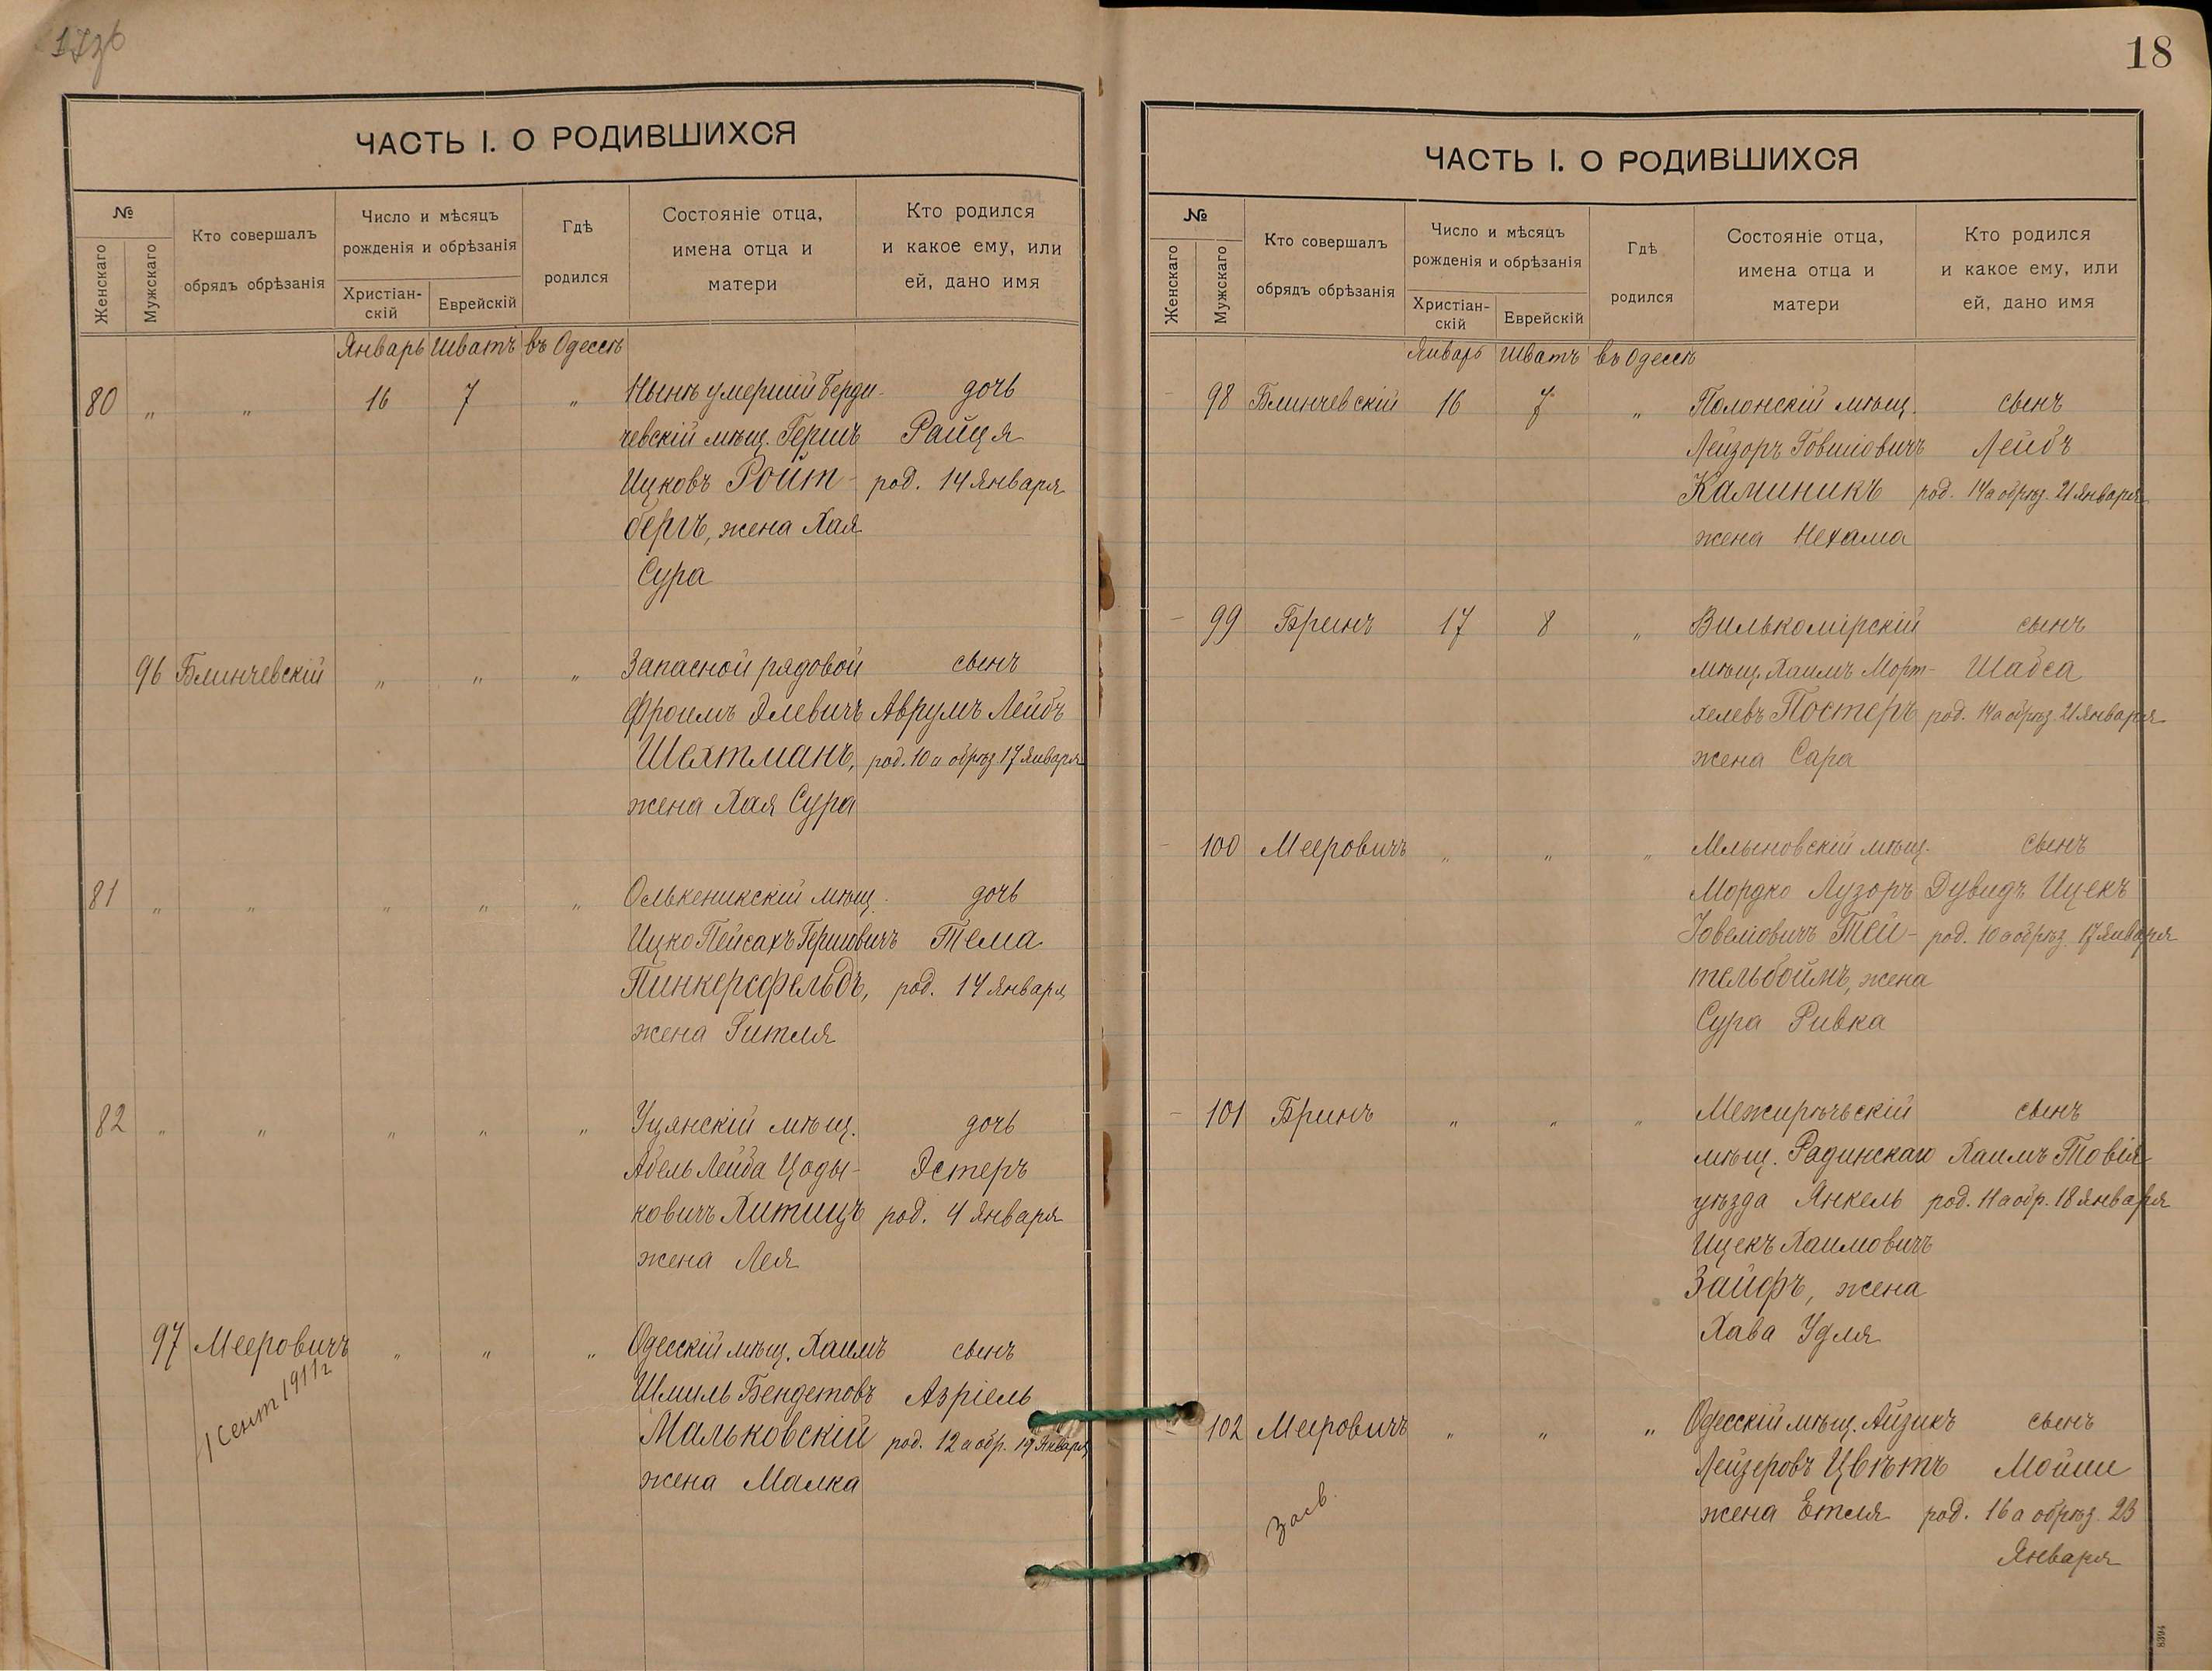 ЧАСТЬ I. О РОДИВШИХСЯ
№
Женскаго
Мужскаго
Кто совершалъ
обрядъ обрѣзанія
Число и мѣсяцъ
рожденія и обрѣзанія
Христіан-
скій
Еврейскій
Гдѣ
родился
Состояніе отца,
имена отца и
матери
Кто родился
и какое ему, или
ей, дано имя
Январь Шватъ въ Одессѣ
80 " " 16 7 " Нынѣ умершій Берди- дочь
чевскій мѣщ. Гершъ Райця
Ицковъ Ройт- род. 14 Января
бергъ, жена Хая
Сура
96 Блинчевскій " " " Запасной рядовой сынъ
Фроимъ Элевичъ Аврумъ Лейбъ
Шехтманъ, род. 10 а обрѣз. 17 Января
жена Хая Сура
81 " " " " " Олькеникскій мѣщ. дочь
Ицко Пейсахъ Гершовичъ Тема
Пинкерсфельдъ, род. 14 Января
жена Гитля
82 " " " " " Уцянскій мѣщ. дочь
Абель Лейба Цоды- Эстеръ
ковичъ Хитицъ род. 4 Января
жена Лея
97 Мееровичъ " " " Одесскій мѣщ. Хаимъ сынъ
1 Сент 1911 г
Шмиль Бендетовъ Азріель
Мальковскій род. 12 а обр. 19 Января
жена Малка
18
ЧАСТЬ I. О РОДИВШИХСЯ
№
Женскаго
Мужскаго
Кто совершалъ
обрядъ обрѣзанія
Число и мѣсяцъ
рожденія и обрѣзанія
Христіан-
скій
Еврейскій
Гдѣ
родился
Состояніе отца,
имена отца и
матери
Кто родился
и какое ему, или
ей, дано имя
Январь Шватъ въ Одессѣ
98 Блинчевскій 16 7 " Полонскій мѣщ. сынъ
Лейзоръ Говшіовичъ Лейбъ
Каминикъ род. 14 а обрѣз. 21 Января
жена Нехама
99 Бринъ 17 8 " Вилькомірскій сынъ
мѣщ. Хаимъ Морт- Шабса
хелевъ Постеръ род. 14 а обрѣз. 21 Января
жена Сара
100 Мееровичъ " " " Млыновскій мѣщ. сынъ
Мордко Лузоръ Дувидъ Ицекъ
Іовеліовичъ Тей- род. 10 а обрѣз. 17 Января
тельбоймъ, жена
Сура Ривка
101 Бринъ " " " Межирѣчьскій сынъ
мѣщ. Радинскаго Хаимъ Товія
уѣзда Янкель род. 11 а обр. 18 Января
Ицекъ Хаимовичъ
Зайфъ, жена
Хава Удля
102 Мееровичъ " " " Одесскій мѣщ. Айзикъ сынъ
Лейзеровъ Цвѣтъ Мойши
жена Етля род. 16 а обрѣз. 23
Января
8394